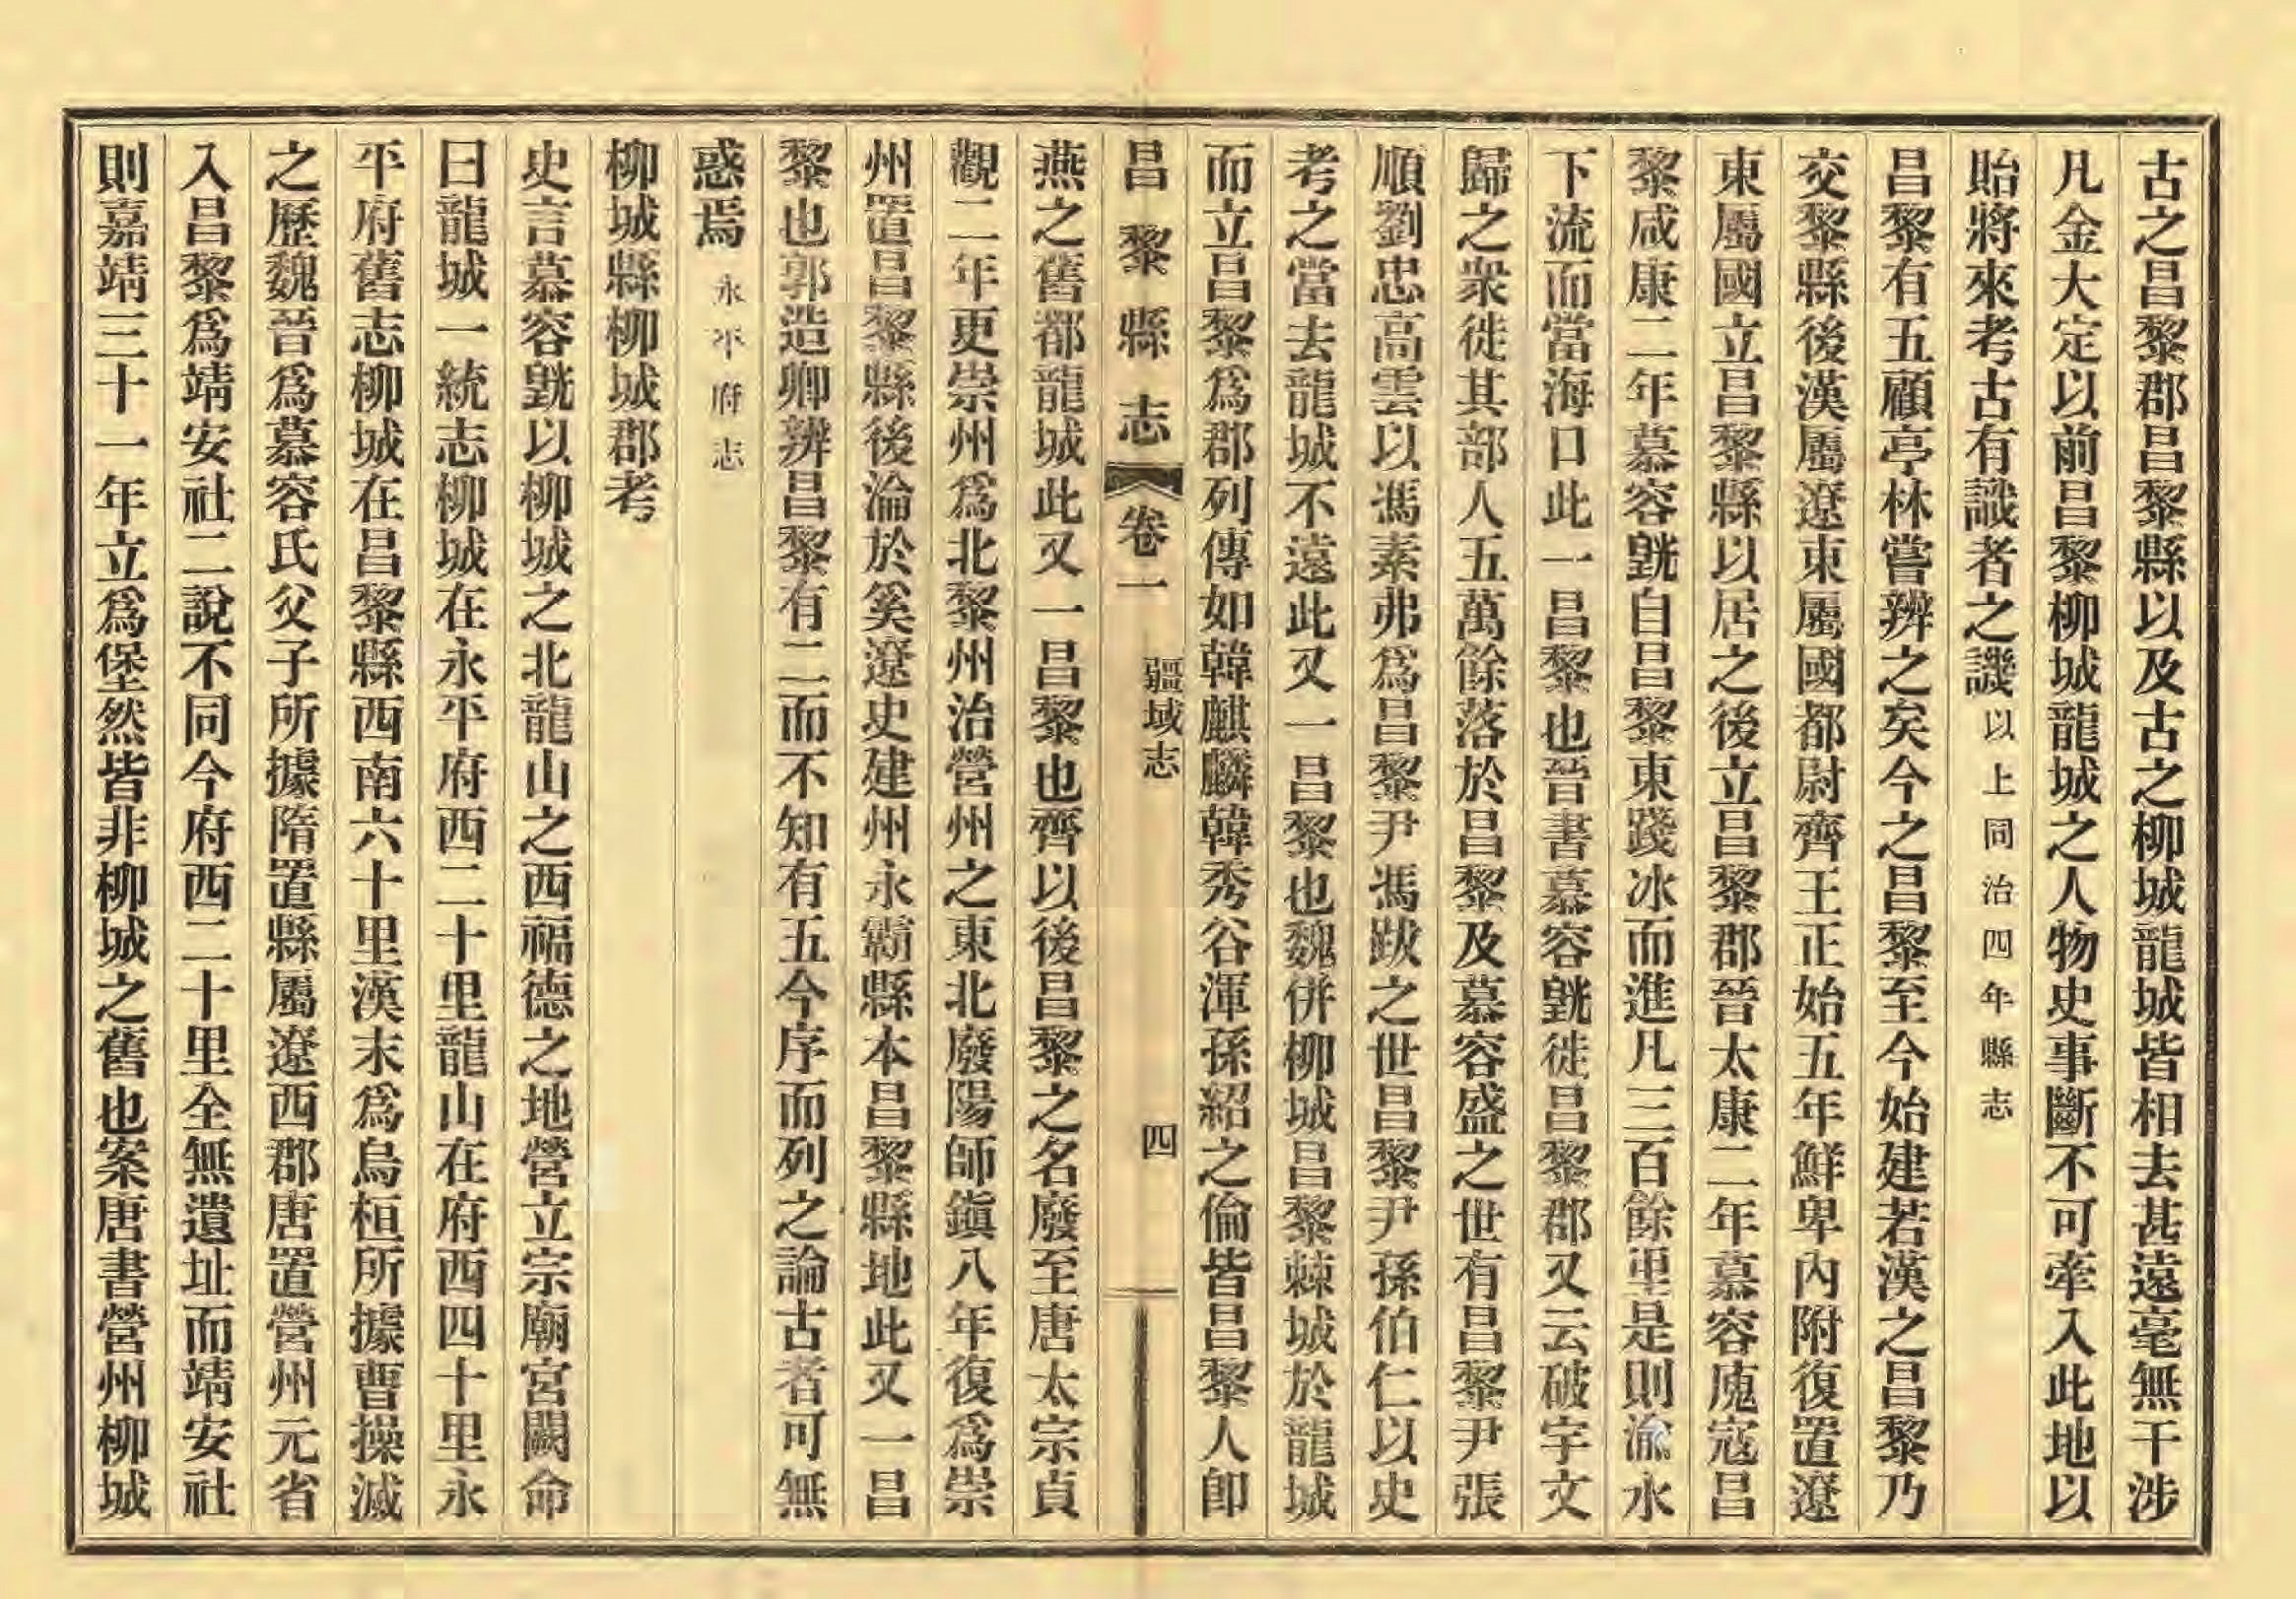 古之昌黎郡昌黎縣以及古之柳城龍城皆相去甚遠毫無干涉
凡金大定以前昌黎柳城龍城之人物史事斷不可牽入此地以
貽將來考古有識者之譏以上同治四年縣志
昌黎有五顧亭林嘗辨之矣今之昌黎至今始建若漢之昌黎乃
交黎縣後漢屬遼東屬國都尉齊王正始五年鮮卑內附復置遼
東屬國立昌黎縣以居之後立昌黎郡晉太康二年慕容廆寇昌
黎咸康二年慕容皝自昌黎東踐冰而進凡三百餘里是則渝水
下流而當海口此一昌黎也晉書慕容皝徙昌黎郡又云破宇文
歸之衆徙其部人五萬餘落於昌黎及慕容盛之世有昌黎尹張
順劉忠高雲以馮素弗爲昌黎尹馮跋之世昌黎尹孫伯仁以史
考之當去龍城不遠此又一昌黎也魏併柳城昌黎棘城於龍城
而立昌黎爲郡列傳如韓麒麟韓秀谷渾孫紹之倫皆昌黎人卽
昌黎縣志 卷一 疆域志 四
燕之舊都龍城此又一昌黎也齊以後昌黎之名廢至唐太宗貞
觀二年更崇州爲北黎州治營州之東北廢陽師鎭八年復爲崇
州置昌黎縣後淪於奚遼史建州永霸縣本昌黎縣地此又一昌
黎也郭造卿辨昌黎有二而不知有五今序而列之論古者可無
惑焉永平府志
柳城縣柳城郡考
史言慕容皝以柳城之北龍山之西福德之地營立宗廟宮闕命
曰龍城一統志柳城在永平府西二十里龍山在府西四十里永
平府舊志柳城在昌黎縣西南六十里漢末爲烏桓所據曹操滅
之歷魏晉爲慕容氏父子所據隋置縣屬遼西郡唐置營州元省
入昌黎爲靖安社二說不同今府西二十里全無遺址而靖安社
則嘉靖三十一年立爲堡然皆非柳城之舊也案唐書營州柳城